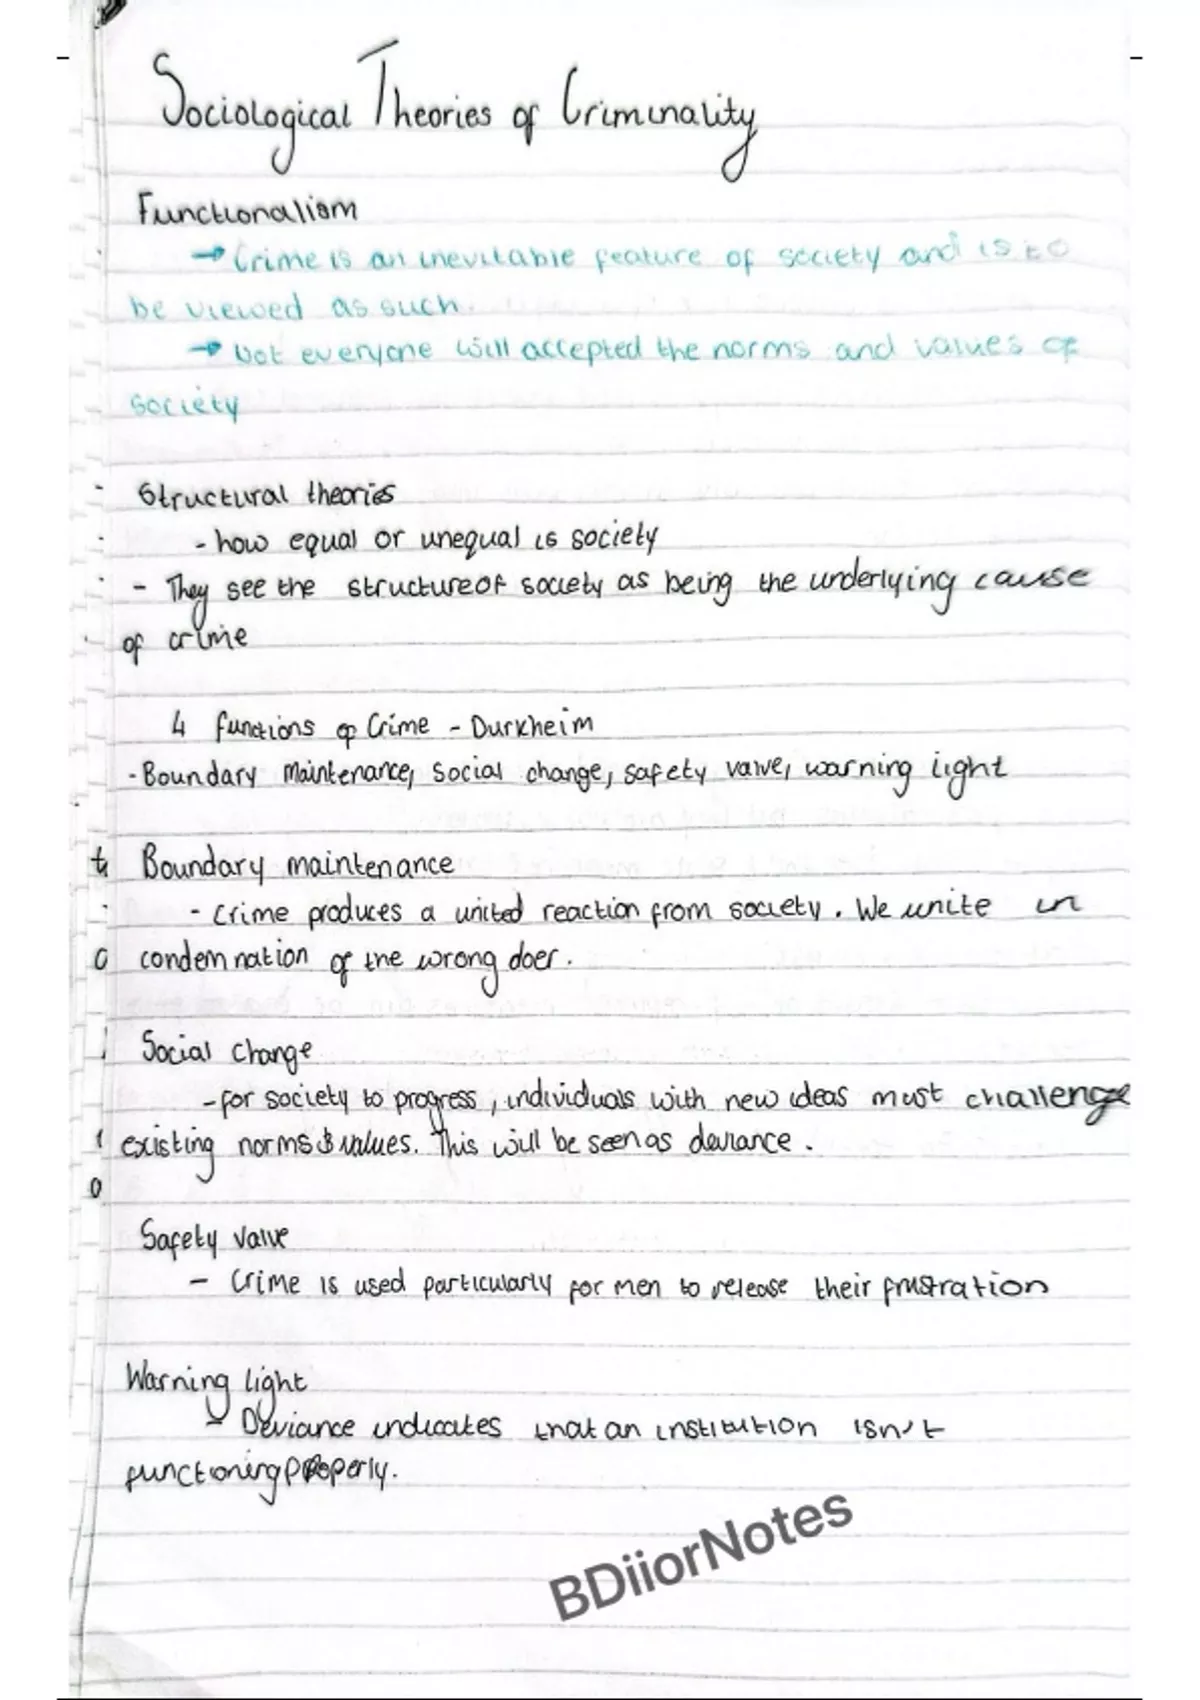 Sociological Theories of Criminality
Functionalism
→ Crime is an inevitable feature of society and is to
be viewed as such.
→ Not everyone will accepted the norms and values of
society
- Structural theories
- how equal or unequal is society
- They see the structure of society as being the underlying cause
of crime
4 functions of Crime - Durkheim
- Boundary Maintenance, social change, safety valve, warning light
Boundary maintenance
- Crime produces a united reaction from society. We unite in
condemnation of the wrong doer.
Social Change
- for society to progress, individuals with new ideas must challenge
existing norms & values. This will be seen as deviance.
Safety Valve
- Crime is used particularly for men to release their frustration
Warning light
- Deviance indicates that an institution isn't
functioning properly.
BDiiorNotes